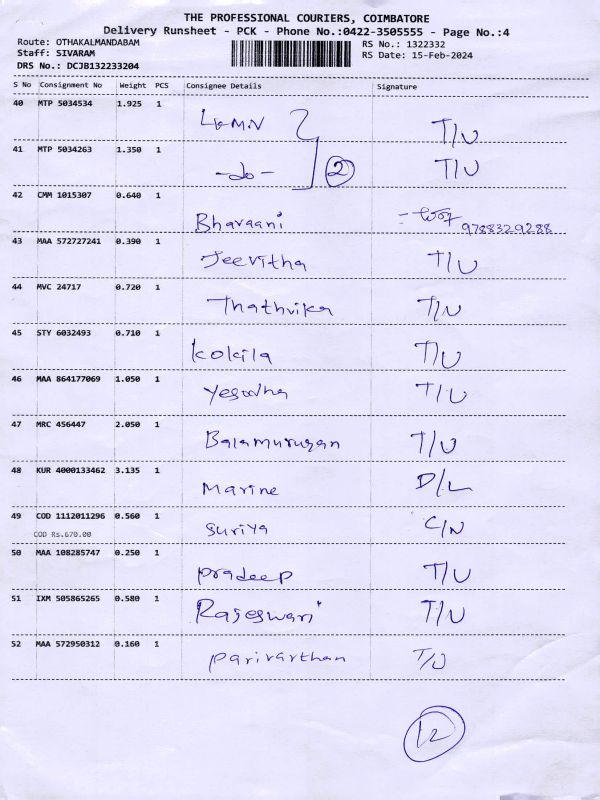 THE PROFESSIONAL COURIERS, COIMBATORE
Delivery Runsheet - PCK - Phone No.:0422-3505555 - Page No.:4
Route: OTHAKALMANDABAM RS No.: 1322332
Staff: SIVARAM RS Date: 15-Feb-2024
DRS No.: DCJB132233204
S No Consignment No Weight PCS Consignee Details Signature
40 MTP 5034534 1.925 1 T/U
41 MTP 5034263 1.350 1 -do- 2 T/U
42 CMM 1015307 0.640 1 Bhavaani 9788329288
43 MAA 572727241 0.390 1 Jeevitha T/U
44 MVC 24717 0.720 1 Thathvika T/U
45 STY 6032493 0.710 1 Kokila T/U
46 MAA 864177069 1.050 1 Yesodha T/U
47 MRC 456447 2.050 1 Balamurugan T/U
48 KUR 4000133462 3.135 1 Marine D/L
49 COD 1112011296 0.560 1 Suriya C/N
COD Rs.670.00
50 MAA 108285747 0.250 1 Pradeep T/U
51 IXM 505865265 0.580 1 Rajeswari T/U
52 MAA 572950312 0.160 1 Parivarthan T/U
12